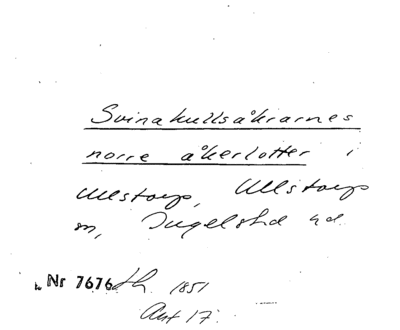 Svinakullsåkrarnes
norre åkerlotter i
Ullstorp, Ullstorps
sn, Ingelstad hd.
Nr 7676 1851
Akt 17.